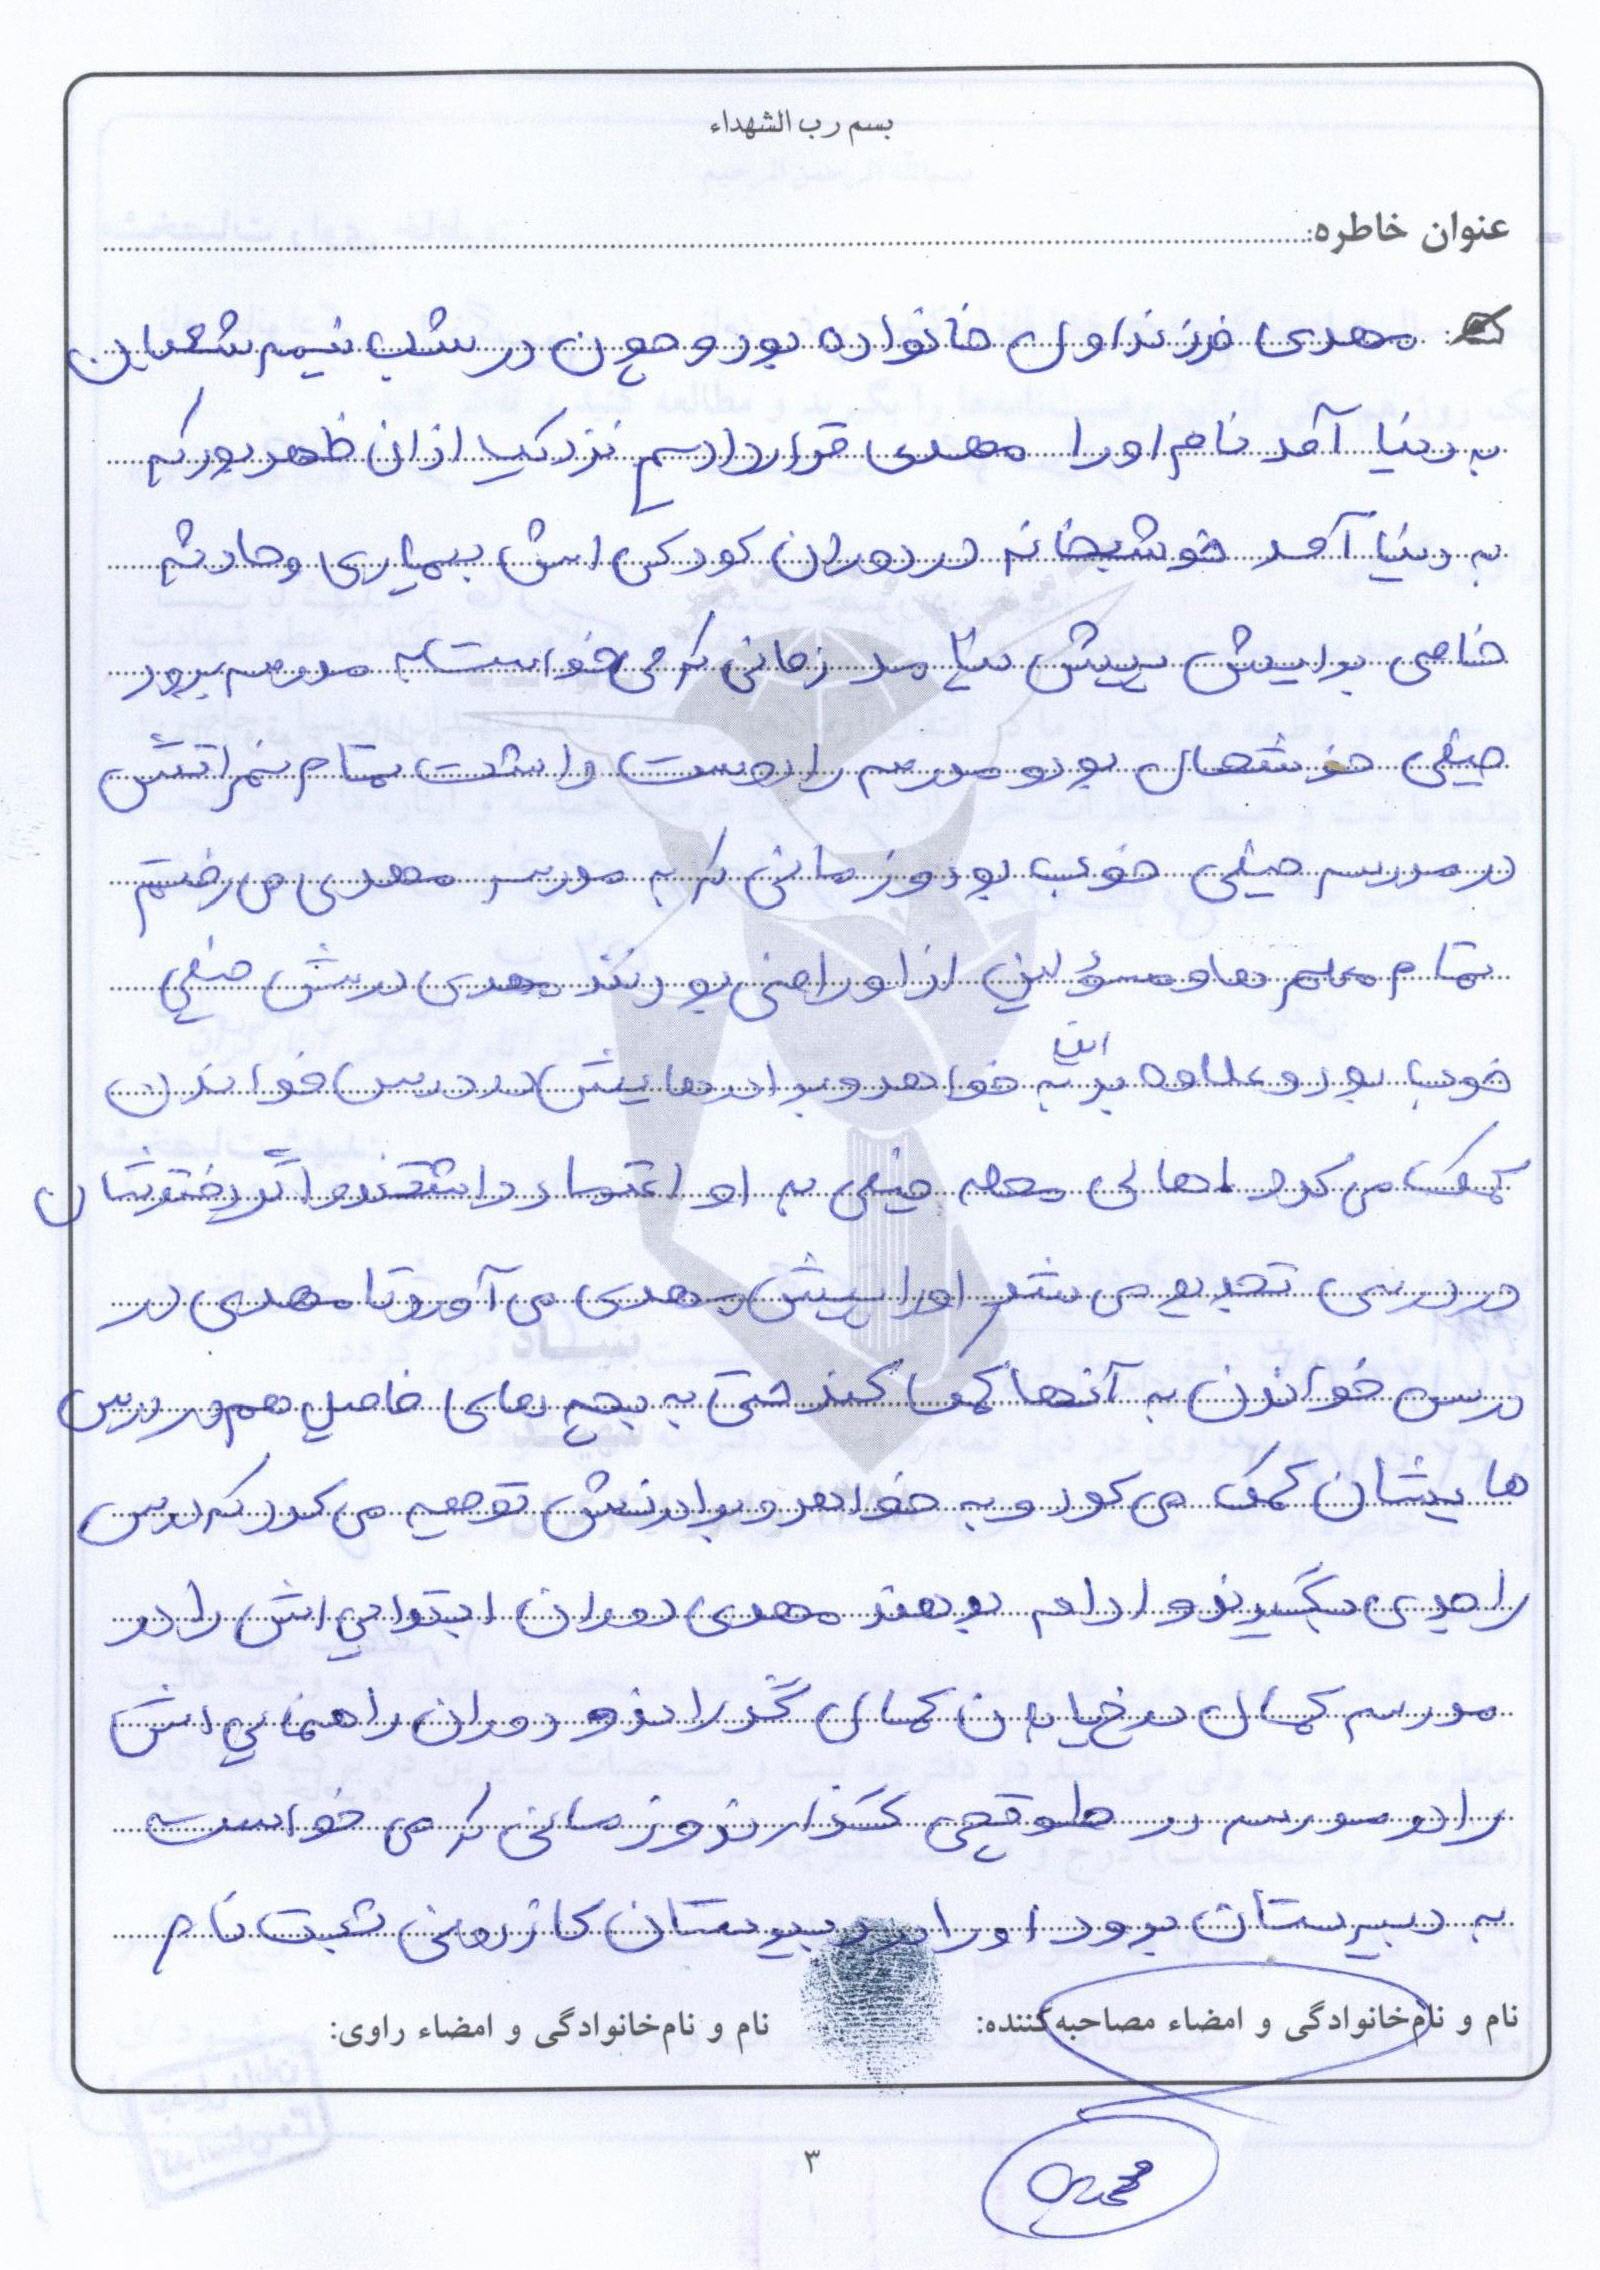 بسم رب الشهداء
عنوان خاطره:
مهدی فرزند اول خانواده بود و چون در شب نیمه شعبان
به دنیا آمد نام او را مهدی قرار دادیم نزدیک اذان ظهر بود که
به دنیا آمد خوشبختانه در دوران کودکی اش بیماری و حادثه
خاصی برایش پیش نیامد زمانی که می خواست به مدرسه برود
خیلی خوشحال بود و مدرسه را دوست داشت تمام نمراتش
در مدرسه خیلی خوب بود و زمانی که به مدرسه مهدی می رفتم
تمام معلم ها و مسؤلین از او راضی بودند مهدی درسش خیلی
خوب بود و علاوه بر این به خواهر و برادرهایش در درس خواندن
کمک می کرد اهالی محله خیلی به او اعتماد داشتند و اگر دخترشان
در درسی تجدید می شد او را پیش مهدی می آورد تا مهدی در
درس خواندن به آنها کمک کند حتی به بچه های فامیل هم در درس
هایشان کمک می کرد و به خواهر و برادرنش توصیه می کرد که درس
را جدی بگیرند و ادامه بدهند مهدی دوران ابتدایی اش را در
مدرسه کمال در خیابان کمال گذراند و دوران راهنمایی اش
را در مدرسه در طوقچی گذارند و زمانی که می خواست
به دبیرستان برود او را در دبیرستان کازرونی ثبت نام
نام و نام‌خانوادگی و امضاء مصاحبه‌کننده:
نام و نام‌خانوادگی و امضاء راوی:
۳